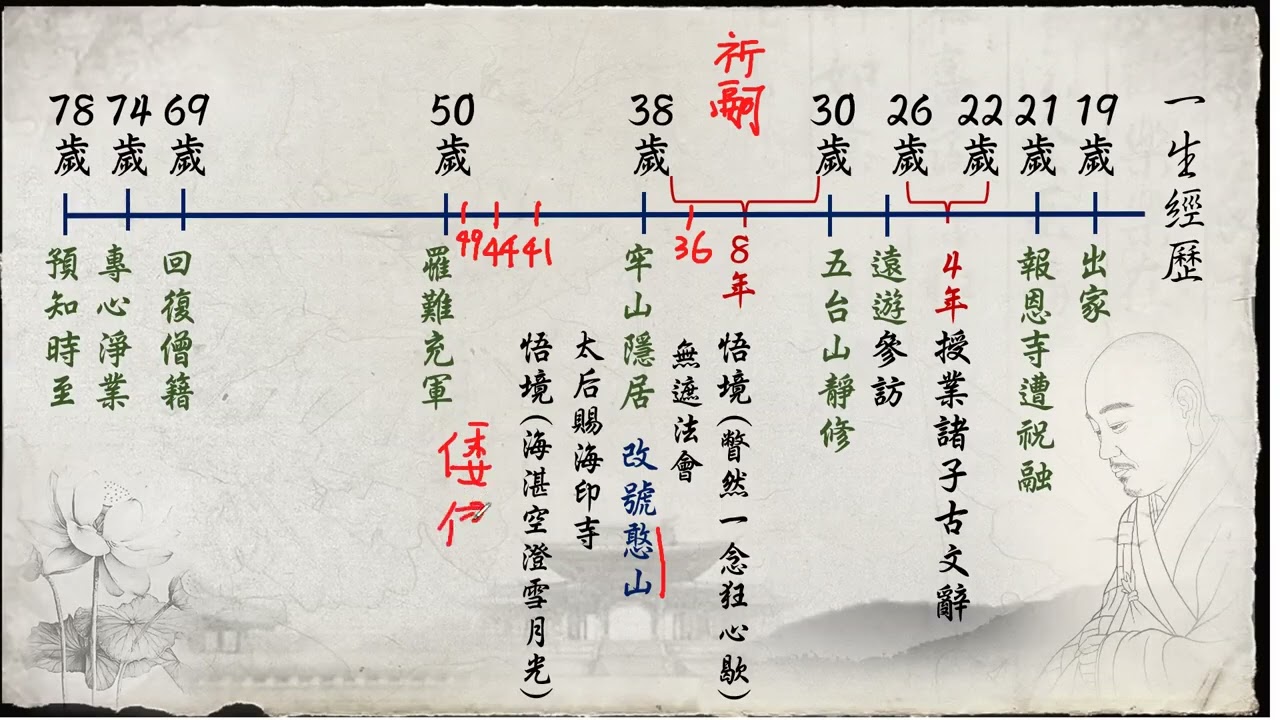 一生經歷
19歲
出家
21歲
報恩寺遭祝融
22歲
26歲
4年
授業諸子古文辭
遠遊參訪
30歲
五台山靜修
祈嗣
8年
悟境(瞥然一念狂心歇)
36
無遮法會
38歲
牢山隱居
改號憨山
太后賜海印寺
41
悟境(海湛空澄雪月光)
44
49
50歲
罹難充軍
倭
69歲
回復僧籍
74歲
專心淨業
78歲
預知時至